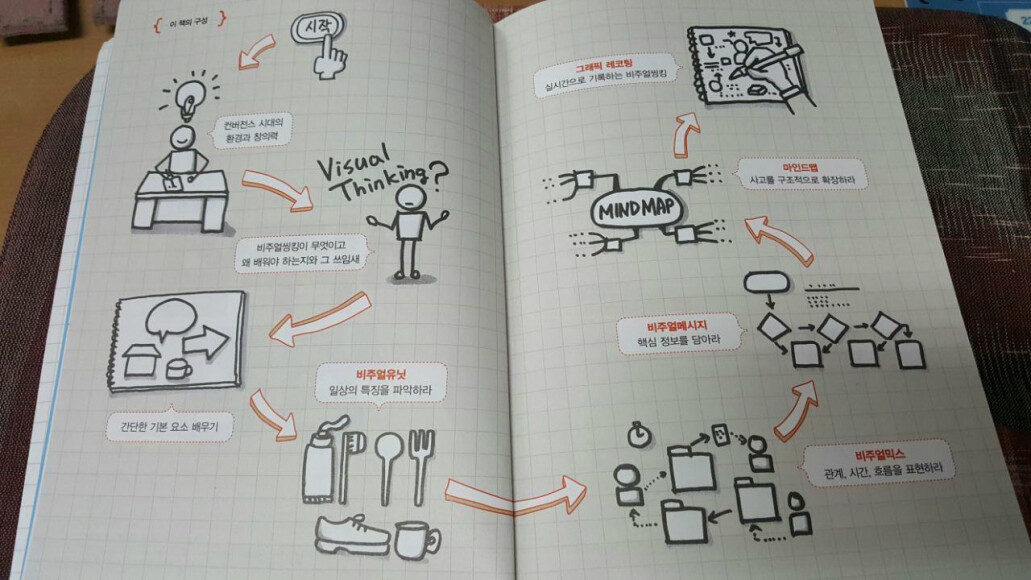 { 이 책의 구성 }
시작
컨버전스 시대의
환경과 창의력
Visual
Thinking?
비주얼씽킹이 무엇이고
왜 배워야 하는지와 그 쓰임새
간단한 기본 요소 배우기
비주얼유닛
일상의 특징을 파악하라
비주얼믹스
관계, 시간, 흐름을 표현하라
비주얼메시지
핵심 정보를 담아라
MINDMAP
마인드맵
사고를 구조적으로 확장하라
그래픽 레코딩
실시간으로 기록하는 비주얼씽킹